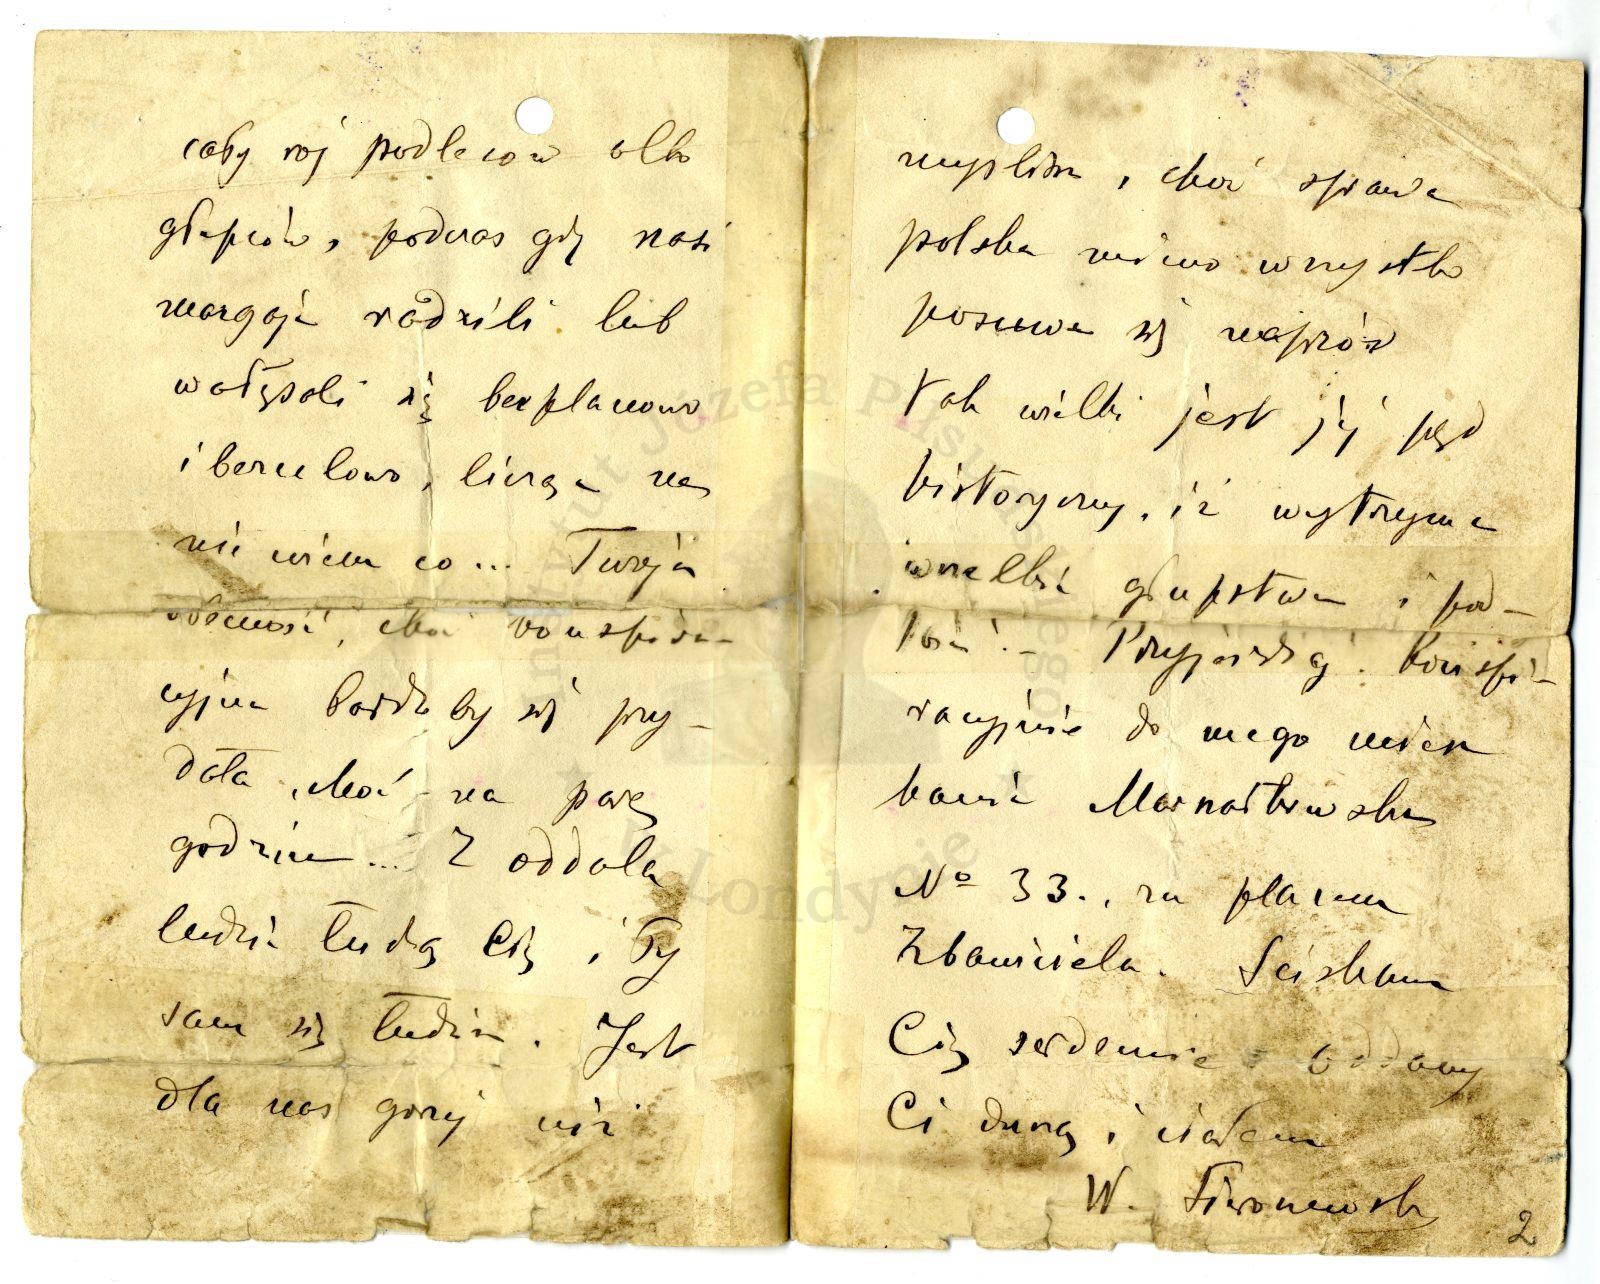 cały rój podleców albo
głupców, podczas gdy nasi
wargają radzili lub
wałęsali się bezplanowo
i bezcelowo, licząc na
nie wiem co... Twoja
obecność, choć konspira-
cyjna bardzo by się przy-
dała, choć na parę
godzin... Z oddala
ludzie łudzą Cię i Ty
sam się łudzisz. Jest
dla nas gorzej niż
myślisz, choć sprawa
polska mimo wszystko
posuwa się naprzód
Tak wielki jest jej pęd
historyczny, iż wytrzyma
wszelkie głupstwa i pod-
łość! - Przyjeżdżaj konspi-
racyjnie do mego miesz
kania Marszałkowska
No 33., za placem
Zbawiciela. Ściskam
Cię serdecznie oddany
Ci duszą i ciałem
W. Sieroszewski
2
Instytut Józefa Piłsudskiego
w Londynie